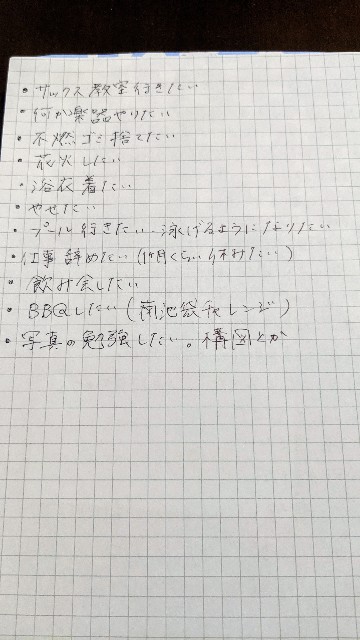 ・サックス教室行きたい
・何か楽器やりたい
・不燃ゴミ捨てたい
・花火したい
・浴衣着たい
・やせたい
・プール行きたい、泳げるようになりたい
・仕事辞めたい(1ヶ月くらい休みたい)
・飲み会したい
・BBQしたい(南池袋チャレンジ)
・写真の勉強したい。構図とか